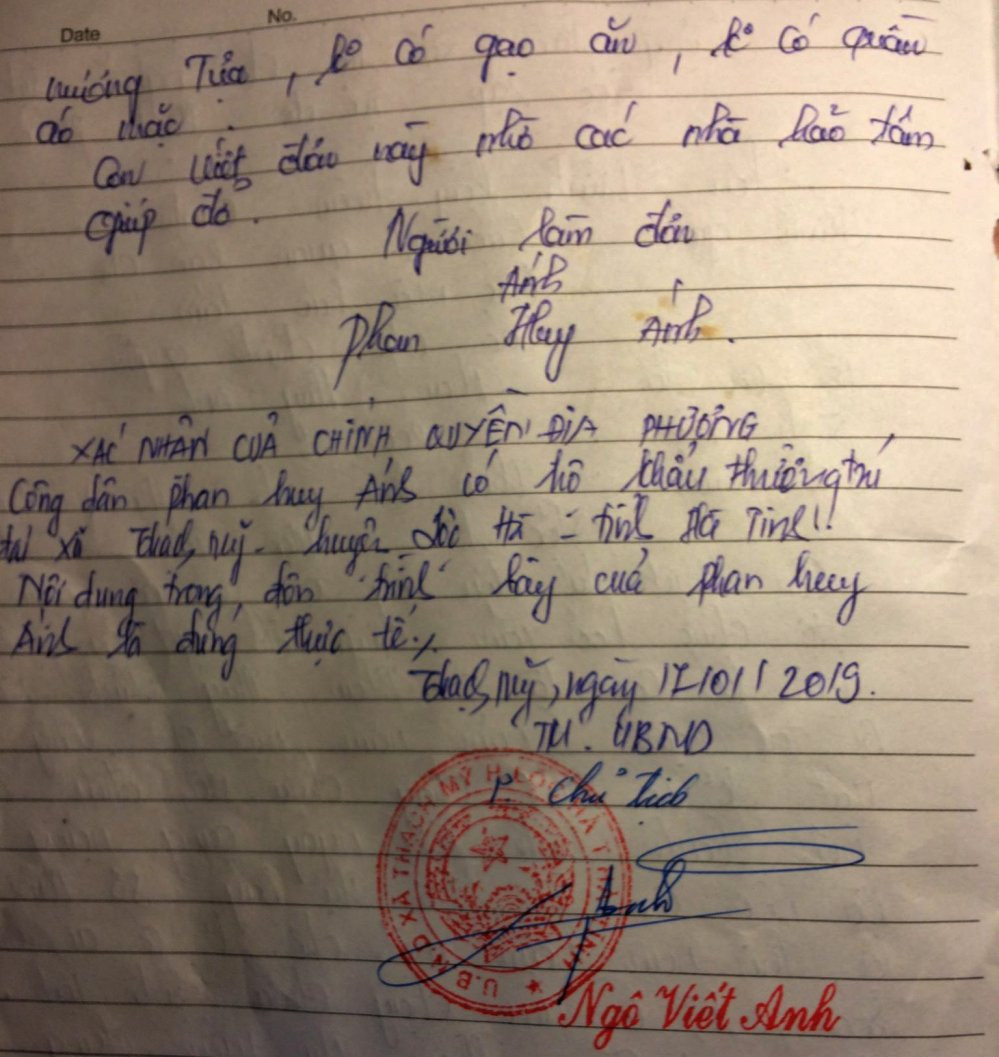 Date No.
nương Tựa, ko có gạo ăn, ko có quần
áo mặc.
Con viết đơn này nhờ các nhà hảo tâm
giúp đỡ.
Người làm đơn
Ánh
Phan Huy Ánh.
XÁC NHẬN CỦA CHÍNH QUYỀN ĐỊA PHƯƠNG
Công dân phan huy Ánh có hộ khẩu thường trú
tại xã Thạch Mỹ - huyện Lộc Hà - tỉnh Hà Tĩnh!!
Nội dung trong đơn trình bày của phan huy
Ánh là đúng thực tế./.
Thạch Mỹ, ngày /01/2019.
TM. UBND
P. Chủ tịch
U.B.N.D XÃ THẠCH MỸ H. LỘC HÀ T. HÀ TĨNH
Anh
Ngô Viết Anh